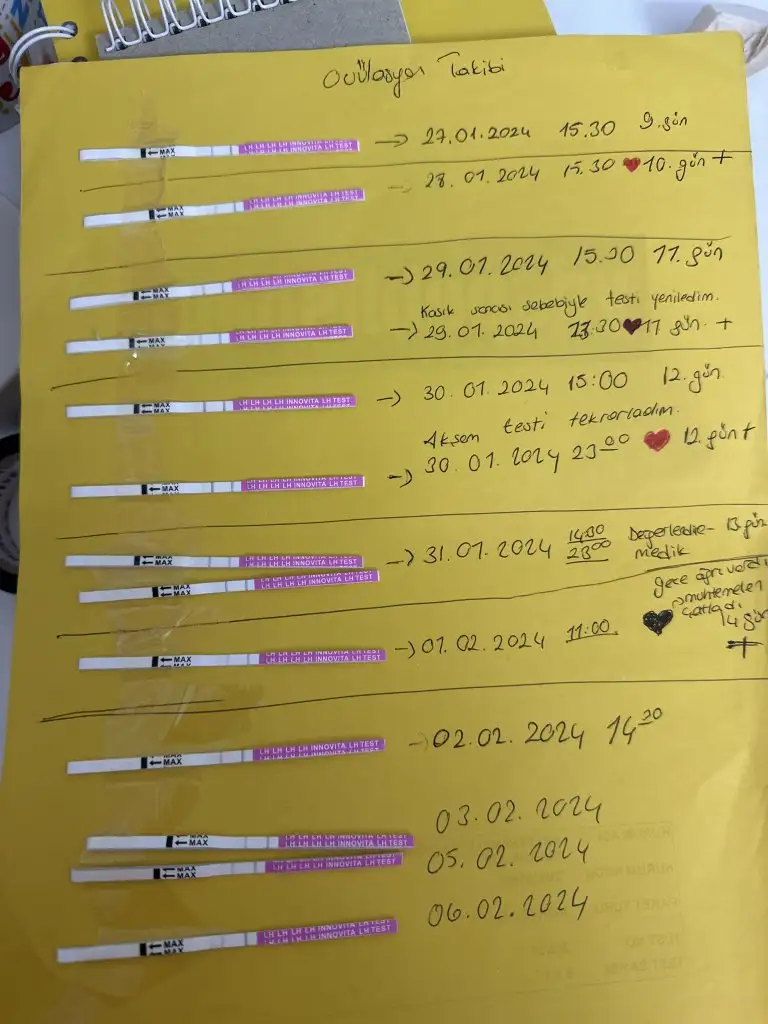 Ovülasyon Takibi
← MAX LH LH LH LH INNOVITA LH TEST → 27.01.2024 15.30 9.gün
← MAX LH LH LH LH INNOVITA LH TEST 28.01.2024 15.30 ♥ 10.gün +
← MAX LH LH LH LH INNOVITA LH TEST → 29.01.2024 15.30 11.gün
Kasık sancısı sebebiyle testi yeniledim.
← MAX LH LH LH LH INNOVITA LH TEST → 29.01.2024 23.30 ♥ 11 gün. +
← MAX LH LH LH LH INNOVITA LH TEST → 30.01.2024 15:00 12.gün.
Akşam testi tekrarladım.
← MAX LH LH LH LH INNOVITA LH TEST → 30.01.2024 23.00 ♥ 12.gün +
← MAX LH LH LH LH INNOVITA LH TEST → 31.01.2024 14:30 Değerlendire- 13.gün
← MAX LH LH LH LH INNOVITA LH TEST 23.00 medik
gece ağrı vardı
muhtemelen
çatladı
← MAX LH LH LH LH INNOVITA LH TEST → 01.02.2024 11:00 ♥ 14 gün
+
← MAX LH LH LH LH INNOVITA LH TEST → 02.02.2024 14.30
← MAX LH LH LH LH INNOVITA LH TEST 03.02.2024
← MAX LH LH LH LH INNOVITA LH TEST 05.02.2024
← MAX LH LH LH LH INNOVITA LH TEST 06.02.2024